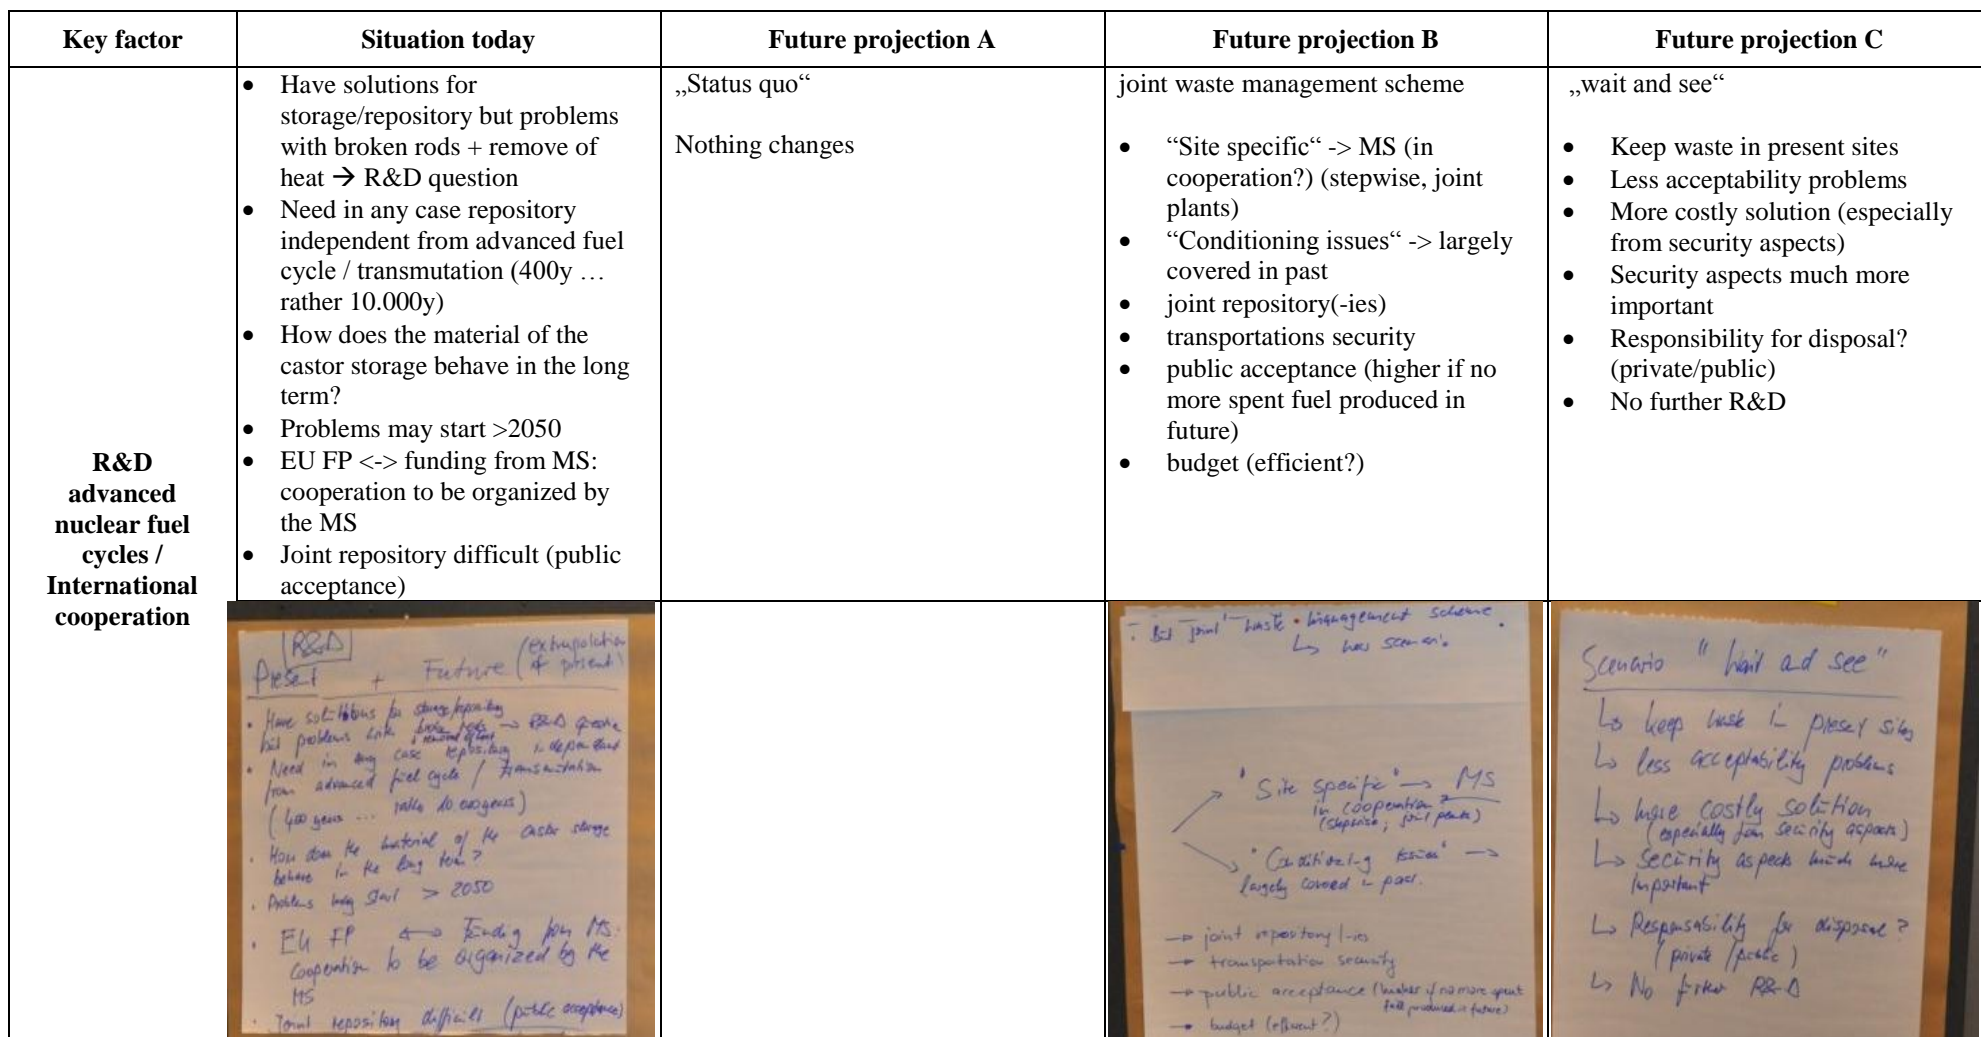 Key factor
Situation today
Future projection A
Future projection B
Future projection C
R&D
advanced
nuclear fuel
cycles /
International
cooperation
• Have solutions for
storage/repository but problems
with broken rods + remove of
heat → R&D question
• Need in any case repository
independent from advanced fuel
cycle / transmutation (400y …
rather 10.000y)
• How does the material of the
castor storage behave in the long
term?
• Problems may start >2050
• EU FP <-> funding from MS:
cooperation to be organized by
the MS
• Joint repository difficult (public
acceptance)
„Status quo“
Nothing changes
joint waste management scheme
• “Site specific“ -> MS (in
cooperation?) (stepwise, joint
plants)
• “Conditioning issues“ -> largely
covered in past
• joint repository(-ies)
• transportations security
• public acceptance (higher if no
more spent fuel produced in
future)
• budget (efficient?)
„wait and see“
• Keep waste in present sites
• Less acceptability problems
• More costly solution (especially
from security aspects)
• Security aspects much more
important
• Responsibility for disposal?
(private/public)
• No further R&D
R&D
Present + Future (extrapolation
of present)
• Have solutions for storage/repository
but problems with broken rods → R&D question
+ removal of heat
• Need in any case repository independent
from advanced fuel cycle / transmutation
(400 years ... rather 10 000 years)
• How does the material of the castor storage
behave in the long term?
• Problems may start > 2050
• EU FP ↔ Funding from MS:
cooperation to be organized by the
MS
• Joint repository difficult (public acceptance)
But joint waste management scheme
↳ new scenario
"Site specific" → MS
in cooperation?
(stepwise, joint plants)
"Conditioning issues" →
largely covered in past.
→ joint repository/-ies
→ transportation security
→ public acceptance (higher if no more spent
fuel produced in future)
→ budget (efficient?)
Scenario "Wait and see"
↳ keep waste in present sites
↳ less acceptability problems
↳ more costly solution
(especially from security aspects)
↳ Security aspects much more
important
↳ Responsability for disposal?
(private/public)
↳ No further R&D